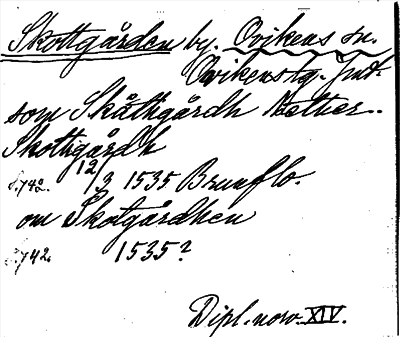 Skottgården by. Ovikens sn.
Ovikenstg. Jmt.
som Skåthgårdh Ketter..
Skottigårdh
s. 742. 12/3 1535 Brunflo.
om Skotgårdhen
s. 742. 1535?
Dipl. norv. XIV.